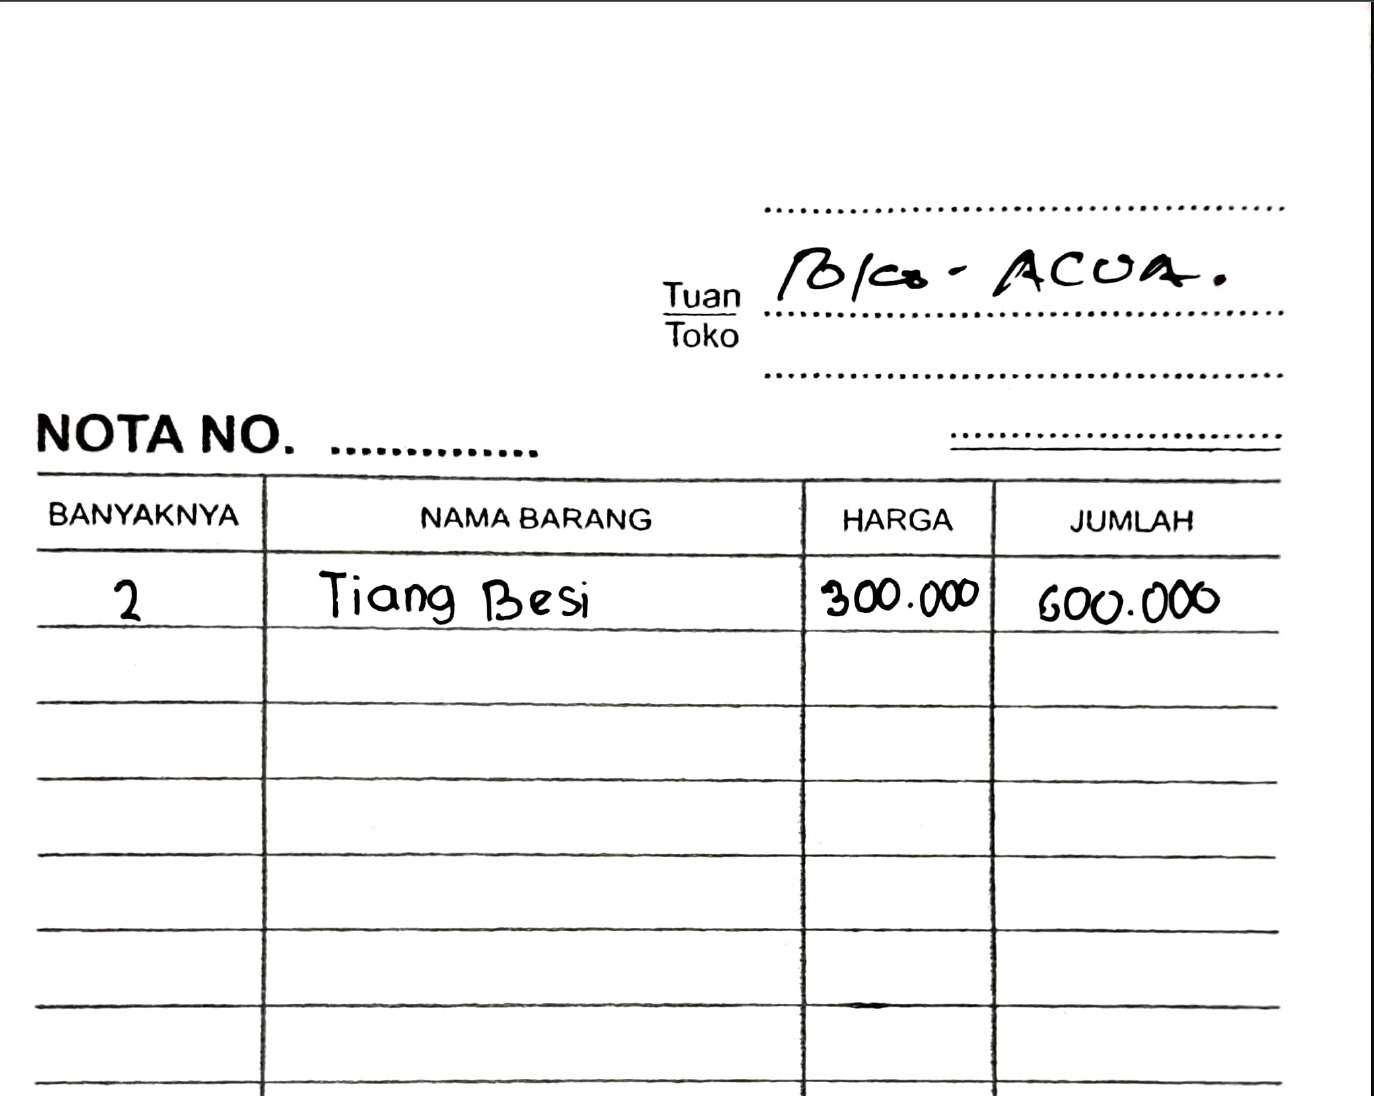 Tuan
Toko
ACUA.
NOTA NO. ..............
BANYAKNYA NAMA BARANG HARGA JUMLAH
2 Tiang Besi 300.000 600.000